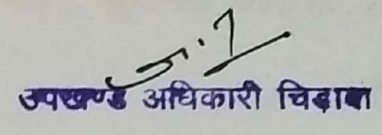 उपखण्ड अधिकारी चिड़ावा